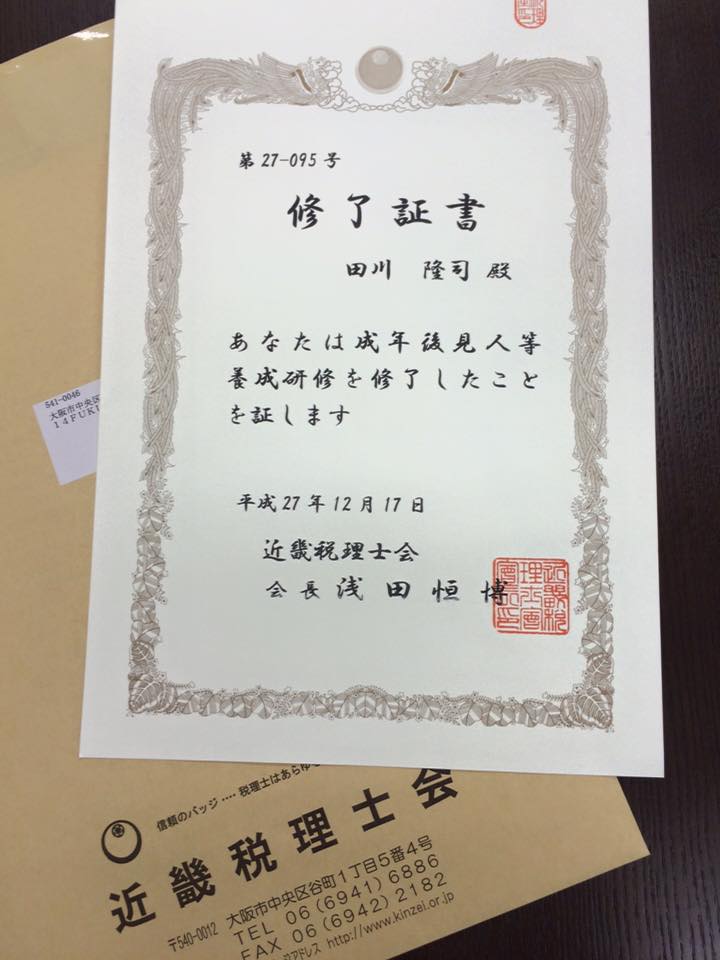 第27-095号
修了証書
田川 隆司 殿
あなたは成年後見人等
養成研修を修了したこと
を証します
平成27年12月17日
近畿税理士会
会長 浅田恒博
541-0046
大阪市中央区
14FUKU
信頼のバッジ‥‥税理士はあらゆ
近畿税理士会
〒540-0012 大阪市中央区谷町1丁目5番4号
TEL 06(6941)6886
FAX 06(6942)2182
アドレス http://www.kinzei.or.jp